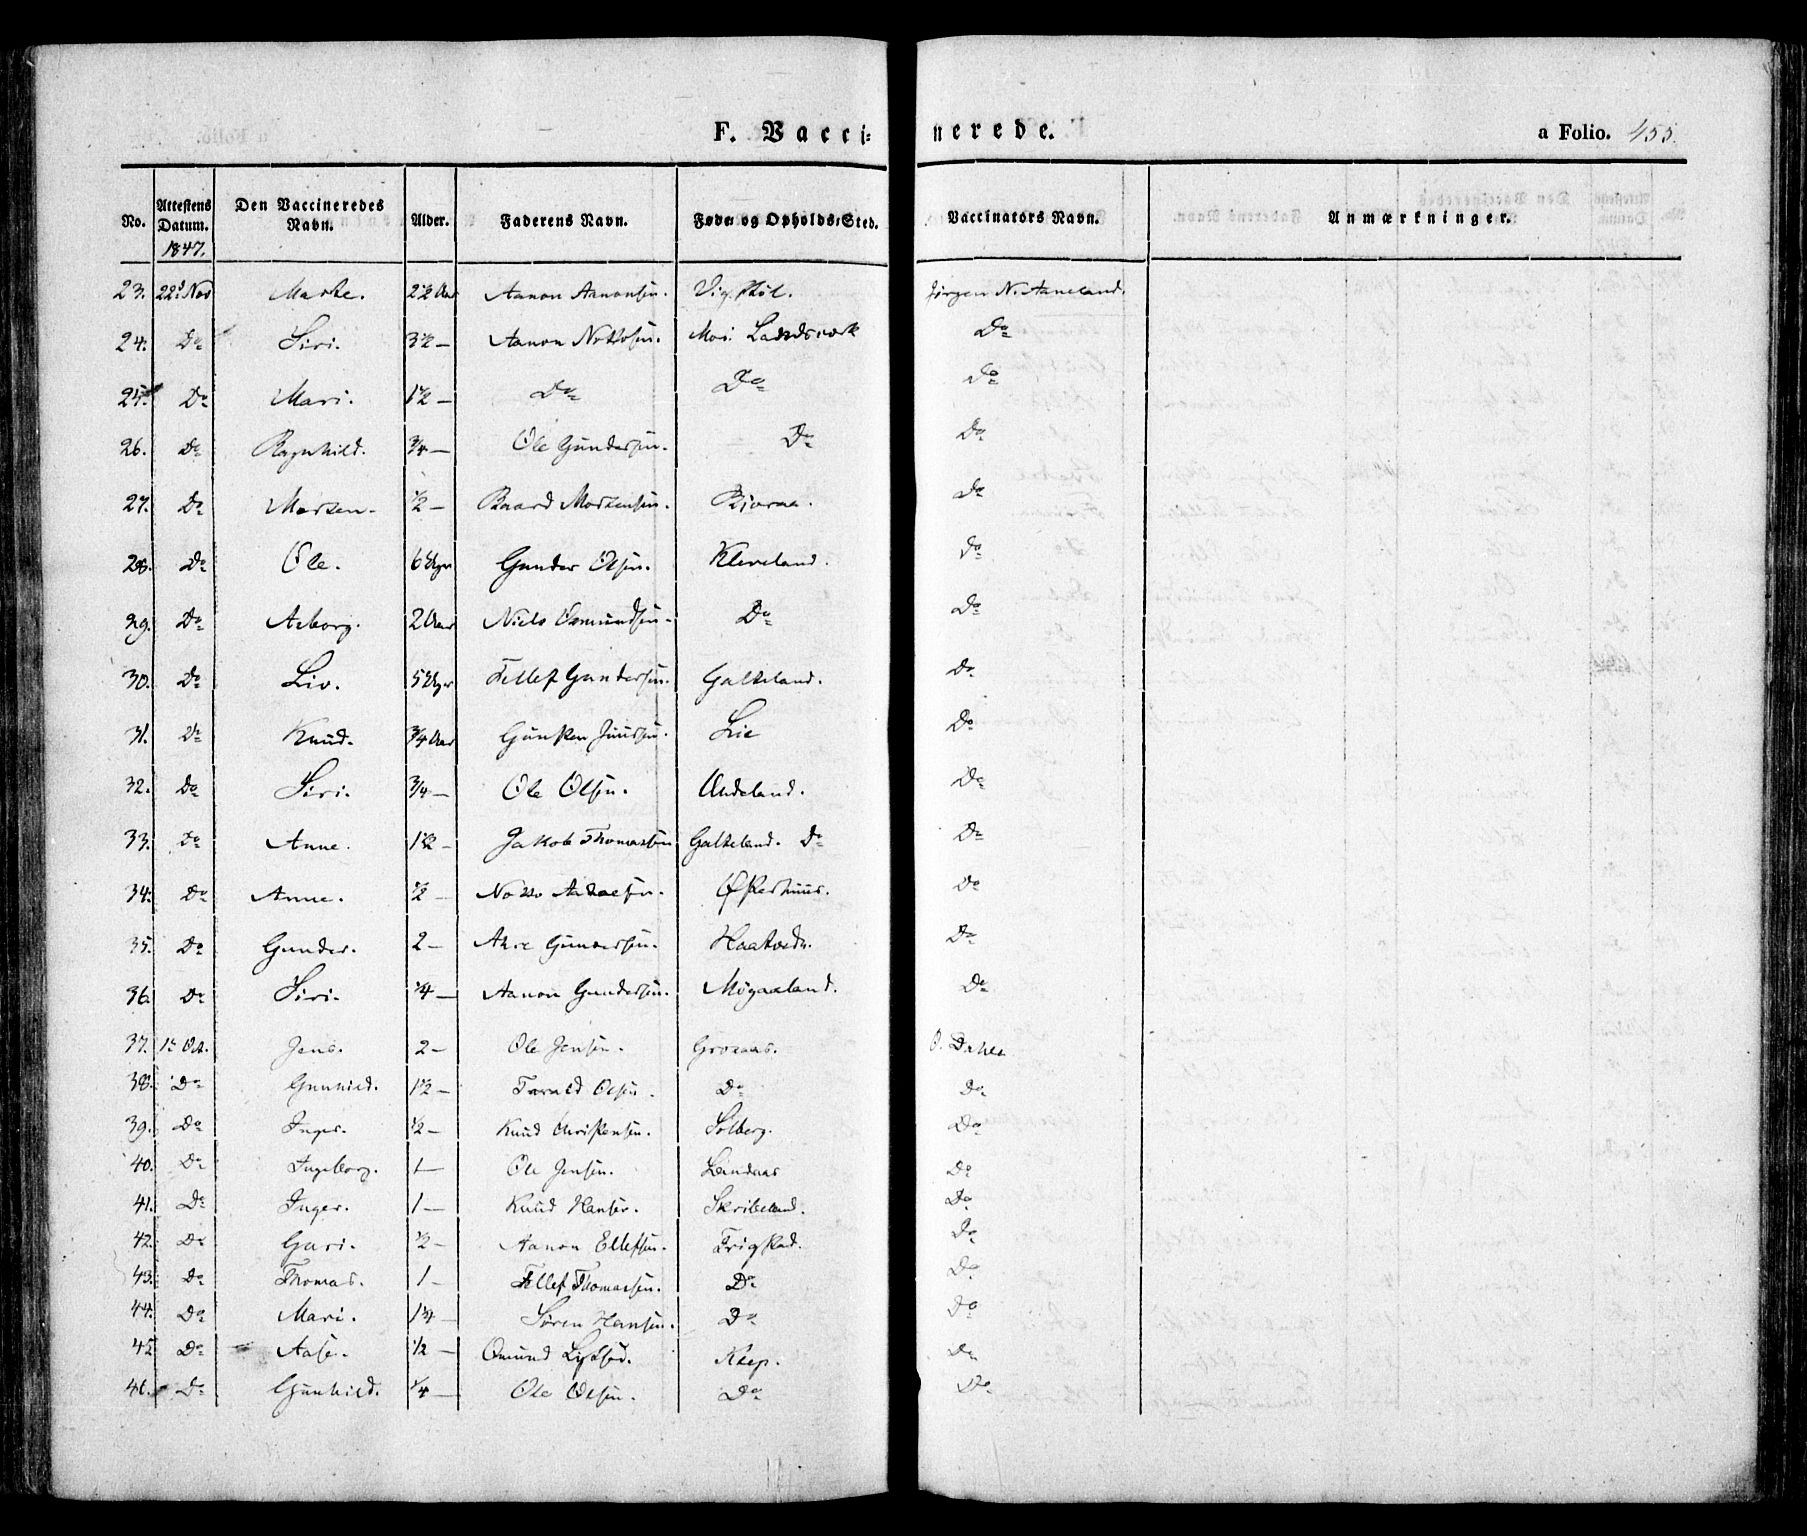 F. Vaccinerede. a Folio. 455.
No. Attestens Datum. 1847. Den Vaccineredes Navn. Alder. Faderens Navn. Føde og Opholds-Sted. Vaccinators Navn. Anmærkninger.
23. 22d Nov Marte. 2 1/2 Aar Aanon Aanonsen. Vigstøl. Jørgen N. Aaneland.
24. Do Siri. 3 1/2 — Aanon Nottosen. Mos. Landsverk Do
25. Do Mari. 1 1/2 — Do Do Do
26. Do Ragnhild. 3/4 — Ole Gundersen. Do Do
27. Do Morten. 1/2 — Baard Mortensen. Bjoraa. Do
28. Do Ole. 6 Uger Gunder Olsen. Kleveland. Do
29. Do Asborg. 2 Aar Niels Osmundsen. Do Do
30. Do Liv. 5 Uger Tellef Gundersen. Galteland. Do
31. Do Knud. 3/4 Aar Gunsten Juussen. Lie Do
32. Do Siri. 3/4 — Ole Olsen. Aadeland. Do
33. Do Anne. 1 1/2 — Jakob Thomassen Galteland. Do Do
34. Do Anne. 1/2 — Notto Østerhuus. Do
35. Do Gunder. 2 — Gundersen. Haatvedt. Do
36. Do Siri. 1/4 — Aanon Gundersen. Møgaaland. Do
37. 1. Oct. Jens. 2 — Ole Jensen. Groaas. O. Dahle
38. Do Gunhild. 1 1/2 — Tarald Olsen. Do Do
39. Do Inger. 1/2 — Knud Christensen. Solberg. Do
40. Do Ingeborg. 1 — Ole Jensen. Landaas Do
41. Do Inger. 1 — Knud Hansen. Skribeland. Do
42. Do Guri. 1/2 — Aanon Ellefsen. Frigstad. Do
43. Do Thomas. 1 — Tellef Thomassen. Do Do
44. Do Mari. 1 1/4 — Søren Hansen. Do Do
45 Do Aase. 1/2 — Omund Keep. Do
46. Do Gunhild. 1/4 — Ole Olsen. Do Do